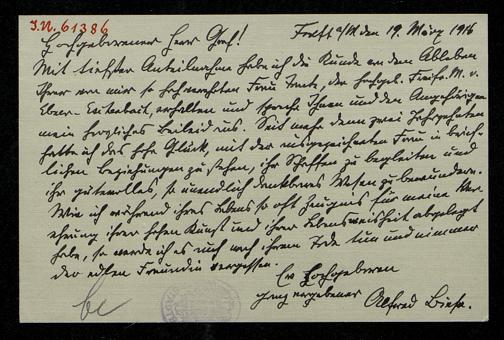 I.N. 61386
Frkft a/M den 19. März 1916
Hochgeborener Herr Graf!
Mit tiefster Anteilnahme habe ich die Kunde von dem Ableben
Ihrer von mir so hochverehrten Frau Tante, der hochgeb. Freifr. M. v.
Ebner-Eschenbach, erhalten und spreche Ihnen und den Angehörigen
mein herzliches Beileid aus. Seit mehr denn zwei Jahrzehnten
hatte ich das hohe Glück, mit der ausgezeichneten Frau in brief-
lichen Beziehungen zu stehen, ihr Schaffen zu begleiten und
ihr gütevolles, so unendlich dankbares Wesen zu bewundern.
Wie ich während ihres Lebens so oft Zeugnis für meine Ver-
ehrung ihrer hohen Kunst und ihrer Lebensweisheit abgelegt
habe, so werde ich es auch nach ihrem Tode tun und nimmer
der edlen Freundin vergessen.
Ew Hochgeboren
ganz ergebener
Alfred Biese.